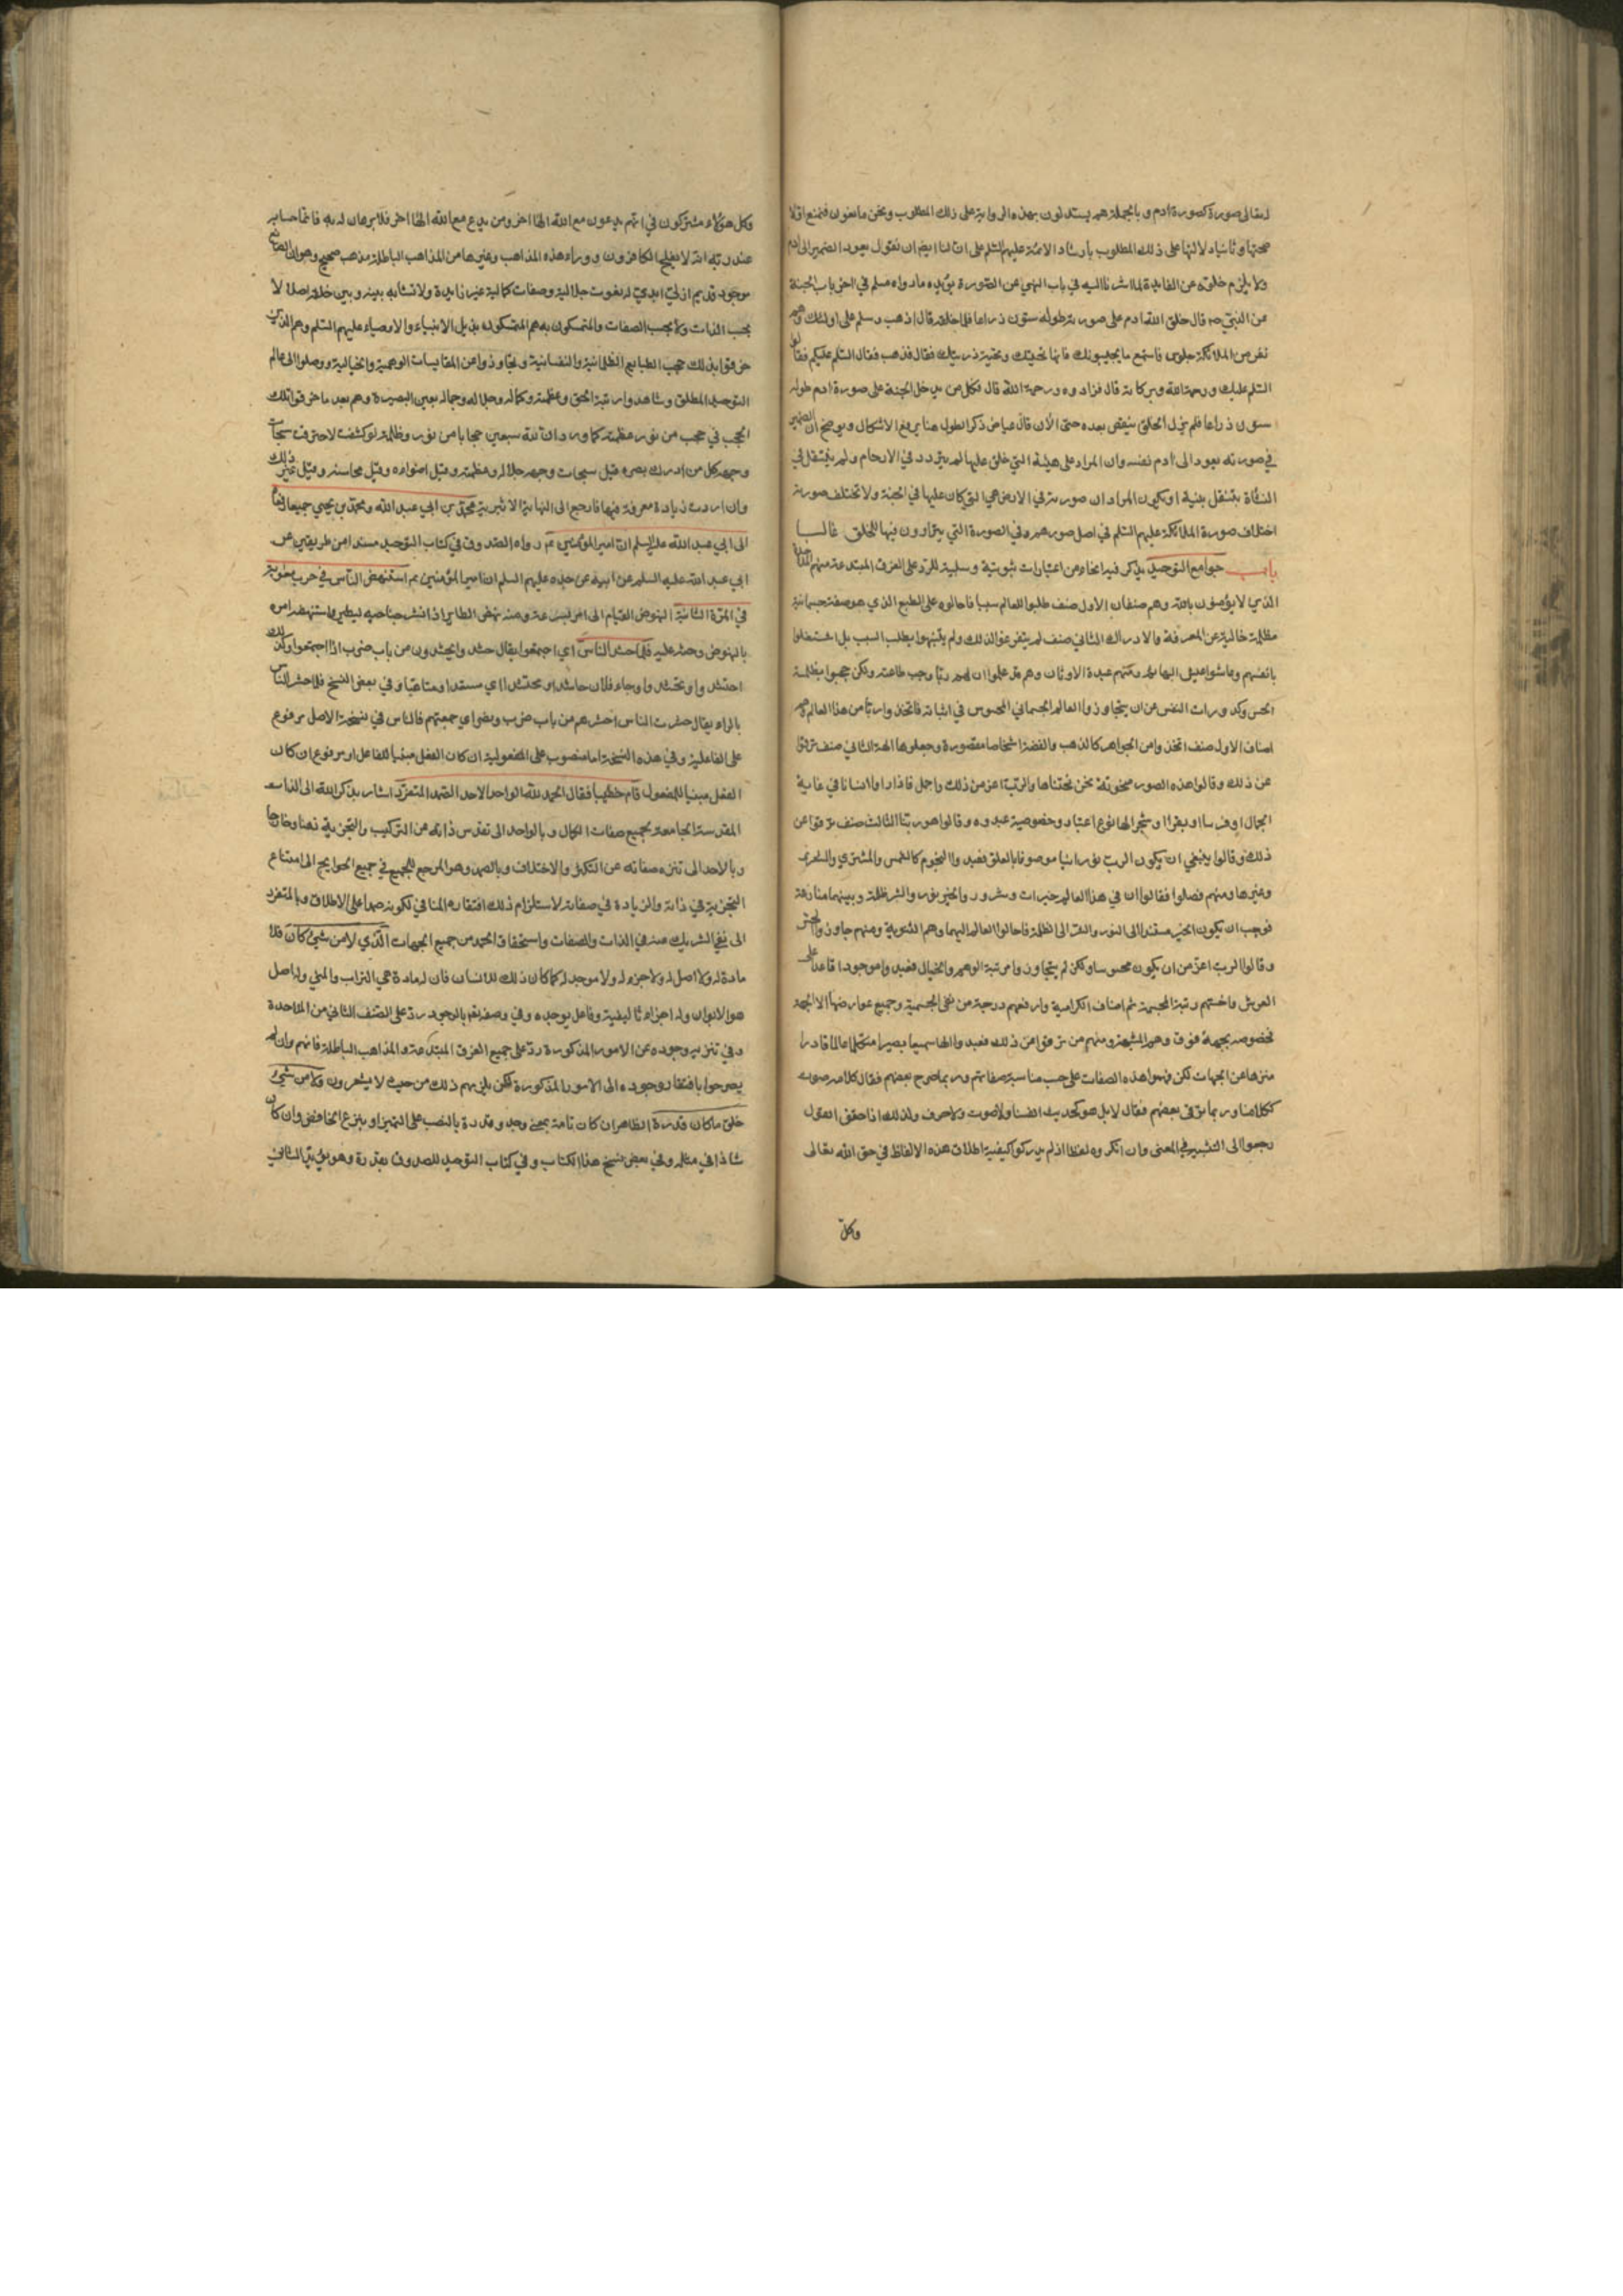 لله تعالى صورة كصورة ادم وبالجملة هم يستدلون بهذه الرواية على ذلك المطلوب ونحن مانعون فنمنع اولا
صحتها وثانيا دلالتها على ذلك المطلوب بارشاد الائمة عليهم السلم على ان لنا ايضا ان نقول يعود الضمير الى ادم
ولا يلزم خلوه عن الفايدة لما اشرنا اليه في باب النهي عن الصورة يؤيده ما رواه مسلم في اخر باب الجنة
عن النبي ص قال خلق الله ادم على صورته طوله ستون ذراعا فلما خلقه قال اذهب وسلم على اولئك وهم
نفر من الملائكة جلوس فاستمع ما يجيبونك فانها تحيتك وتحية ذريتك فقال فذهب فقال السلم عليكم فقالوا
السلم عليك ورحمة الله وبركاته قال فزادوه ورحمة الله قال فكل من يدخل الجنة على صورة ادم طوله
ستون ذراعا فلم يزل الخلق ينقص بعده حتى الان قال عياض ذكر الطول هنا يرفع الاشكال ويوضح ان الضمير
في صورته يعود الى ادم نفسه وان المراد على هيئته التي خلق عليها لم يتردد في الارحام ولم ينتقل في
النشأة بتنقل بنيه او يكون المراد ان صورته في الارض هي التي كان عليها في الجنة ولا تختلف صورته
اختلاف صورة الملائكة عليهم السلم في اصل صورهم وفي الصورة التي يتراؤون فيها للخلق غالبا
باب جوامع التوحيد يذكر فيه انحاء من اعتبارات ثبوتية وسلبية للرد على الفرق المبتدعة منهم الملاحدة
الذين لا يؤمنون بالله وهم صنفان الاول صنف طلبوا للعالم سببا فاحالوه على الطبع الذي هو صفة جسمانية
مظلمة خالية عن المعرفة والادراك الثاني صنف لم يتفرغوا لذلك ولم يتنبهوا بطلب السبب بل اشتغلوا
بانفسهم وعاشوا عيش البهائم ومنهم عبدة الاوثان وهم قد علموا ان لهم ربا وجب طاعته ولكن حجبوا بظلمة
الحس وكدورات النفس عن ان يتجاوزوا العالم الجسماني المحسوس في اثباته فاتخذوا ربا من هذا العالم وهم
اصناف الاول صنف اتخذوا من الجواهر كالذهب والفضة اشخاصا مقصورة وجعلوها الهة الثاني صنف ترقوا
عن ذلك وقالوا هذه الصور منحوتة نحن نحتناها والرب اعز من ذلك واجل فاذا راوا انسانا في غاية
الجمال او فرسا او بقرا او شجرا لها نوع اعتياد وخصوصية عبدوه وقالوا هو ربنا الثالث صنف ترقوا عن
ذلك وقالوا ينبغي ان يكون الرب نورانيا موصوفا بالعلو فعبدوا النجوم كالشمس والمشتري والشعرى
وغيرها ومنهم فصلوا فقالوا ان في هذا العالم خيرات وشرور والخير نور والشر ظلمة وبينهما منازعة
فوجب ان يكون الخير مستندا الى النور والشر الى الظلمة فاحالوا العالم اليهما وهم الثنوية ومنهم جاوزوا الحس
وقالوا الرب اعز من ان يكون محسوسا ولكن لم يتجاوزوا مرتبة الوهم والخيال فعبدوا موجودا قاعدا على
العرش واخسهم رتبة المجسمة ثم اصناف الكرامية وارفعهم درجة من نفى الجسمية وجميع عوارضها الا الجهة
فخصوصه بجهة فوق وهم المشبهة ومنهم من ترقوا من ذلك فعبدوا الها سميعا بصيرا متكلما عالما قادرا
منزها عن الجهات لكن فهموا هذه الصفات على حسب مناسبة صفاتهم وربما صرح بعضهم فقال كلامه صوت
ككلامنا وربما ترقى بعضهم فقال لا بل هو كحديث انفسنا ولا صوت ولا حرف ولذلك اذا حقق القول
رجعوا الى التشبيه في المعنى وان انكروه لفظا اذ لم يدركوا كيفية اطلاق هذه الالفاظ في حق الله تعالى
وكل
وكل هؤلاء مشتركون في انهم يدعون مع الله الها اخر ومن يدع مع الله الها اخر فلا برهان له به فانما حسابه
عند ربه انه لا يفلح الكافرون ووراء هذه المذاهب وغيرها من المذاهب الباطلة مذهب صحيح وهو ان الصانع
موجود قديم ازلي ابدي له نعوت جلالية وصفات كمالية غير زايدة ولا تشابه بينه وبين خلقه اصلا لا
بحسب الذات ولا بحسب الصفات والمتمسكون به هم المتمسكون بذيل الانبياء والاوصياء عليهم السلم وهم الذين
خرقوا بذلك حجب الطبايع الظلمانية والنفسانية وتجاوزوا عن المقايسات الوهمية والخيالية ووصلوا الى عالم
التوحيد المطلق وشاهدوا رتبة الحق وعظمته وكماله وجلاله وجماله بعين البصيرة وهم بعد ما خرقوا تلك
الحجب في حجب من نور عظمته كما ورد ان لله سبعين حجابا من نور وظلمة لو كشفت لاحترقت سبحات
وجهه كل من ادرك بصره قيل سبحات وجهه جلاله وعظمته وقيل اضواءه وقيل محاسنه وقيل غير ذلك
وان اردت زيادة معرفة فيها فارجع الى النهاية الاثيرية محمد بن ابي عبد الله ومحمد بن يحيى جميعا رفعاه
الى ابي عبد الله عليه السلم ان امير المؤمنين عم رواه الصدوق في كتاب التوحيد مسندا من طريقين عن
ابي عبد الله عليه السلم عن ابيه عن جده عليهم السلم ان امير المؤمنين عم استنهض الناس في حرب معوية
في المرة الثانية النهوض القيام الى امر بسرعة ومنه نهض الطاير اذا نشر جناحيه ليطير واستنهضه امره
بالنهوض وحثه عليه فلما حشد الناس اي اجتمعوا يقال حشدوا يحشدون من باب ضرب اذا اجتمعوا وكذلك
احتشدوا وتحشدوا وجاء فلان حاشدا ومحتشدا اي مستعدا ومتاهبا وفي بعض النسخ فلما حشر الناس
بالراء يقال حشرت الناس احشرهم من باب ضرب ونصر اي جمعتهم فالناس في نسخة الاصل مرفوع
على الفاعلية وفي هذه النسخة اما منصوب على المفعولية ان كان الفعل مبنيا للفاعل او مرفوع ان كان
الفعل مبنيا للمفعول قام خطيبا فقال الحمد لله الواحد الاحد الصمد المتفرد اشار بذكر الله الى الذات
المقدسة الجامعة بجميع صفات الكمال وبالواحد الى تقدس ذاته عن التركيب والتجزية ذهنا وخارجا
وبالاحد الى تنزه صفاته عن التكثر والاختلاف وبالصمد وهو المرجع للجميع في جميع الحوايج الى امتناع
التجزية في ذاته والزيادة في صفاته لاستلزام ذلك افتقاره المنافي لكونه صمدا على الاطلاق وبالمتفرد
الى نفي الشريك عنه في الذات والصفات واستحقاق الحمد من جميع الجهات الذي لا من شيئ كان فلا
مادة له ولا اصل له ولا جزء له ولا موجد له كما كان ذلك للانسان فان له مادة هي التراب والمني وله اصل
هو الابوان وله اجزاء تاليفية وفاعل يوجده وفي وصفه تعالى بالوجود رد على الصنف الثاني من الملاحدة
وفي تنزيه وجوده عن الامور المذكورة رد على جميع الفرق المبتدعة والمذاهب الباطلة فانهم وان لم
يصرحوا بافتقار وجوده الى الامور المذكورة لكن يلزمهم ذلك من حيث لا يشعرون ولا من شيئ
خلق ما كان قدرة الظاهر ان كان تامة بمعنى وجد وقدرة بالنصب على التميز او بنزع الخافض وان كان
شاذا في مثله وفي بعض نسخ هذا الكتاب وفي كتاب التوحيد للصدوق بقدرة وهو يؤيد الثاني